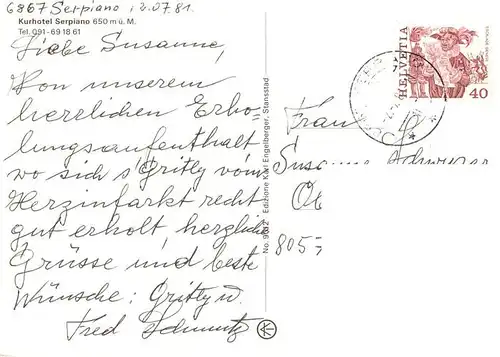 6867 Serpiano, 2.07.81.
Kurhotel Serpiano 650 m ü. M.
Tel. 091-69 18 61
Liebe Susanne,
Von unserem
herrlichen Erho=
lungsaufenthalt
wo sich s'Gritly vom
Herzinfarkt recht
gut erholt, herzliche
Grüsse und beste
Wünsche: Gritly u.
Fred Schmutz
Edizione Karl Engelberger, Stansstad
HELVETIA
40
Frau
Susanne
805